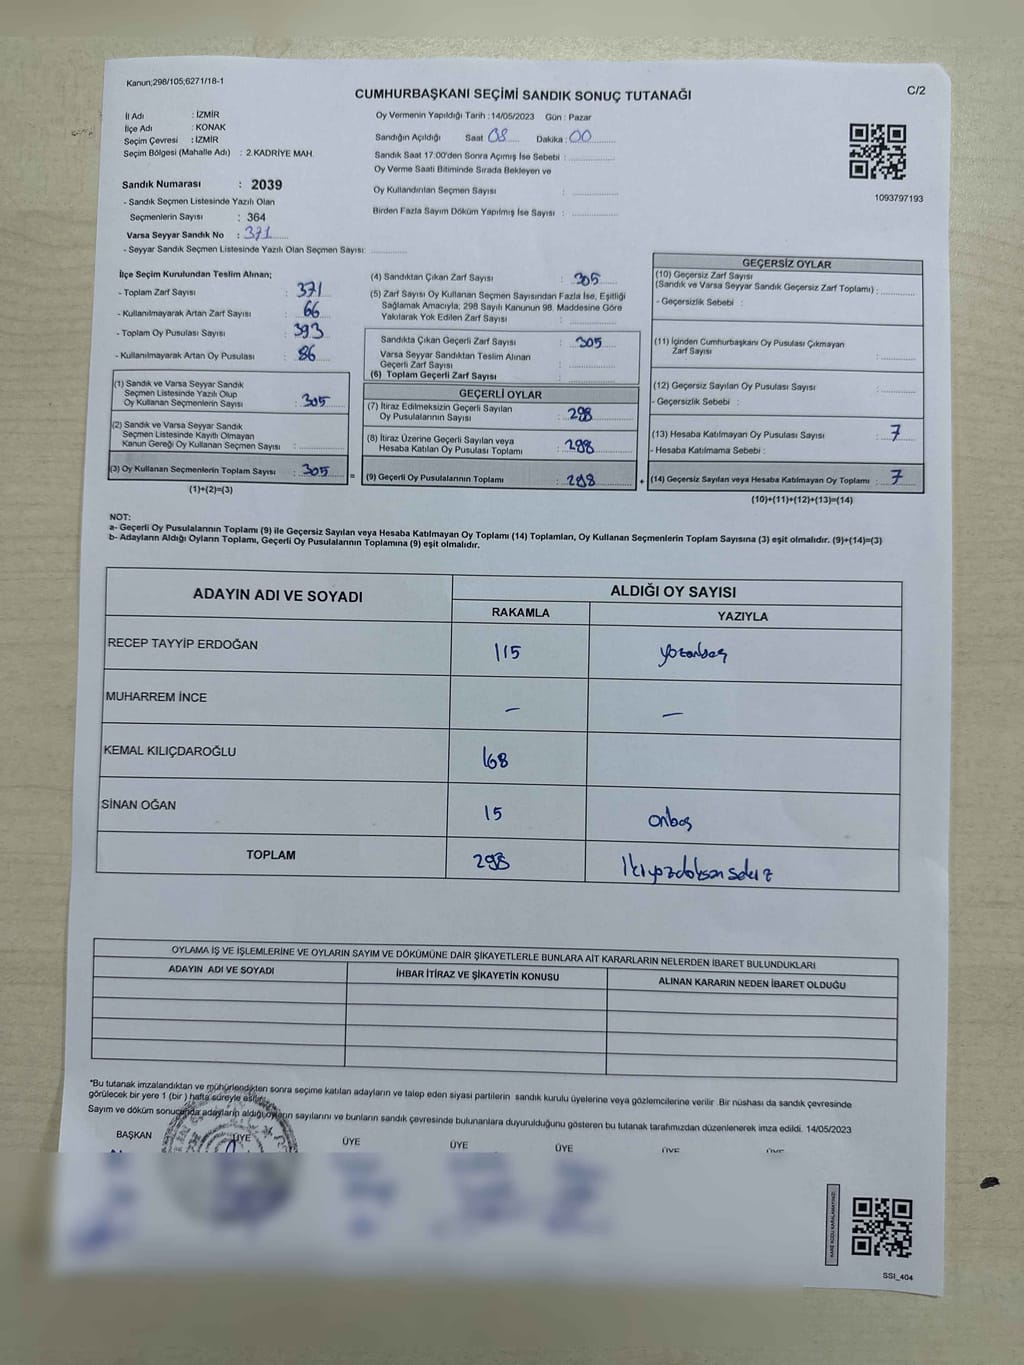 Kanun;298/105;6271/18-1
CUMHURBAŞKANI SEÇİMİ SANDIK SONUÇ TUTANAĞI
C/2
İl Adı : İZMİR
İlçe Adı : KONAK
Seçim Çevresi : İZMİR
Seçim Bölgesi (Mahalle Adı) : 2.KADRİYE MAH.
Oy Vermenin Yapıldığı Tarih : 14/05/2023 Gün : Pazar
Sandığın Açıldığı Saat 08 Dakika : 00
Sandık Saat 17:00'den Sonra Açımış İse Sebebi :
Oy Verme Saati Bitiminde Sırada Bekleyen ve
Oy Kullandırılan Seçmen Sayısı :
Birden Fazla Sayım Döküm Yapılmış İse Sayısı :
1093797193
Sandık Numarası : 2039
- Sandık Seçmen Listesinde Yazılı Olan
Seçmenlerin Sayısı : 364
Varsa Seyyar Sandık No : 371
- Seyyar Sandık Seçmen Listesinde Yazılı Olan Seçmen Sayısı:
İlçe Seçim Kurulundan Teslim Alınan;
- Toplam Zarf Sayısı : 371
- Kullanılmayarak Artan Zarf Sayısı : 66
- Toplam Oy Pusulası Sayısı : 393
- Kullanılmayarak Artan Oy Pusulası : 86
(1) Sandık ve Varsa Seyyar Sandık
Seçmen Listesinde Yazılı Olup
Oy Kullanan Seçmenlerin Sayısı : 305
(2) Sandık ve Varsa Seyyar Sandık
Seçmen Listesinde Kayıtlı Olmayan
Kanun Gereği Oy Kullanan Seçmen Sayısı :
(3) Oy Kullanan Seçmenlerin Toplam Sayısı : 305
(1)+(2)=(3)
(4) Sandıktan Çıkan Zarf Sayısı : 305
(5) Zarf Sayısı Oy Kullanan Seçmen Sayısından Fazla İse, Eşitliği
Sağlamak Amacıyla; 298 Sayılı Kanunun 98. Maddesine Göre
Yakılarak Yok Edilen Zarf Sayısı :
Sandıkta Çıkan Geçerli Zarf Sayısı : 305
Varsa Seyyar Sandıktan Teslim Alınan
Geçerli Zarf Sayısı :
(6) Toplam Geçerli Zarf Sayısı :
GEÇERLİ OYLAR
(7) İtiraz Edilmeksizin Geçerli Sayılan
Oy Pusulalarının Sayısı : 298
(8) İtiraz Üzerine Geçerli Sayılan veya
Hesaba Katılan Oy Pusulası Toplamı : 298
(9) Geçerli Oy Pusulalarının Toplamı : 298
=
+
GEÇERSİZ OYLAR
(10) Geçersiz Zarf Sayısı
(Sandık ve Varsa Seyyar Sandık Geçersiz Zarf Toplamı) :
- Geçersizlik Sebebi :
(11) İçinden Cumhurbaşkanı Oy Pusulası Çıkmayan
Zarf Sayısı :
(12) Geçersiz Sayılan Oy Pusulası Sayısı :
- Geçersizlik Sebebi :
(13) Hesaba Katılmayan Oy Pusulası Sayısı : 7
- Hesaba Katılmama Sebebi :
(14) Geçersiz Sayılan veya Hesaba Katılmayan Oy Toplamı : 7
(10)+(11)+(12)+(13)=(14)
NOT:
a- Geçerli Oy Pusulalarının Toplamı (9) ile Geçersiz Sayılan veya Hesaba Katılmayan Oy Toplamı (14) Toplamları, Oy Kullanan Seçmenlerin Toplam Sayısına (3) eşit olmalıdır. (9)+(14)=(3)
b- Adayların Aldığı Oyların Toplamı, Geçerli Oy Pusulalarının Toplamına (9) eşit olmalıdır.
ADAYIN ADI VE SOYADI
ALDIĞI OY SAYISI
RAKAMLA YAZIYLA
RECEP TAYYİP ERDOĞAN 115 yüzonbeş
MUHARREM İNCE – –
KEMAL KILIÇDAROĞLU 168
SİNAN OĞAN 15 onbeş
TOPLAM 298 ikiyüzdoksan sekiz
OYLAMA İŞ VE İŞLEMLERİNE VE OYLARIN SAYIM VE DÖKÜMÜNE DAİR ŞİKAYETLERLE BUNLARA AİT KARARLARIN NELERDEN İBARET BULUNDUKLARI
ADAYIN ADI VE SOYADI İHBAR İTİRAZ VE ŞİKAYETİN KONUSU ALINAN KARARIN NEDEN İBARET OLDUĞU
*Bu tutanak imzalandıktan ve mühürlendikten sonra seçime katılan adayların ve talep eden siyasi partilerin sandık kurulu üyelerine veya gözlemcilerine verilir .Bir nüshası da sandık çevresinde
görülecek bir yere 1 (bir ) hafta süreyle asılır.
Sayım ve döküm sonucunda adayların aldığı oyların sayılarını ve bunların sandık çevresinde bulunanlara duyurulduğunu gösteren bu tutanak tarafımızdan düzenlenerek imza edildi. 14/05/2023
BAŞKAN ÜYE ÜYE ÜYE ÜYE ÜYE ÜYE
SSİ_404